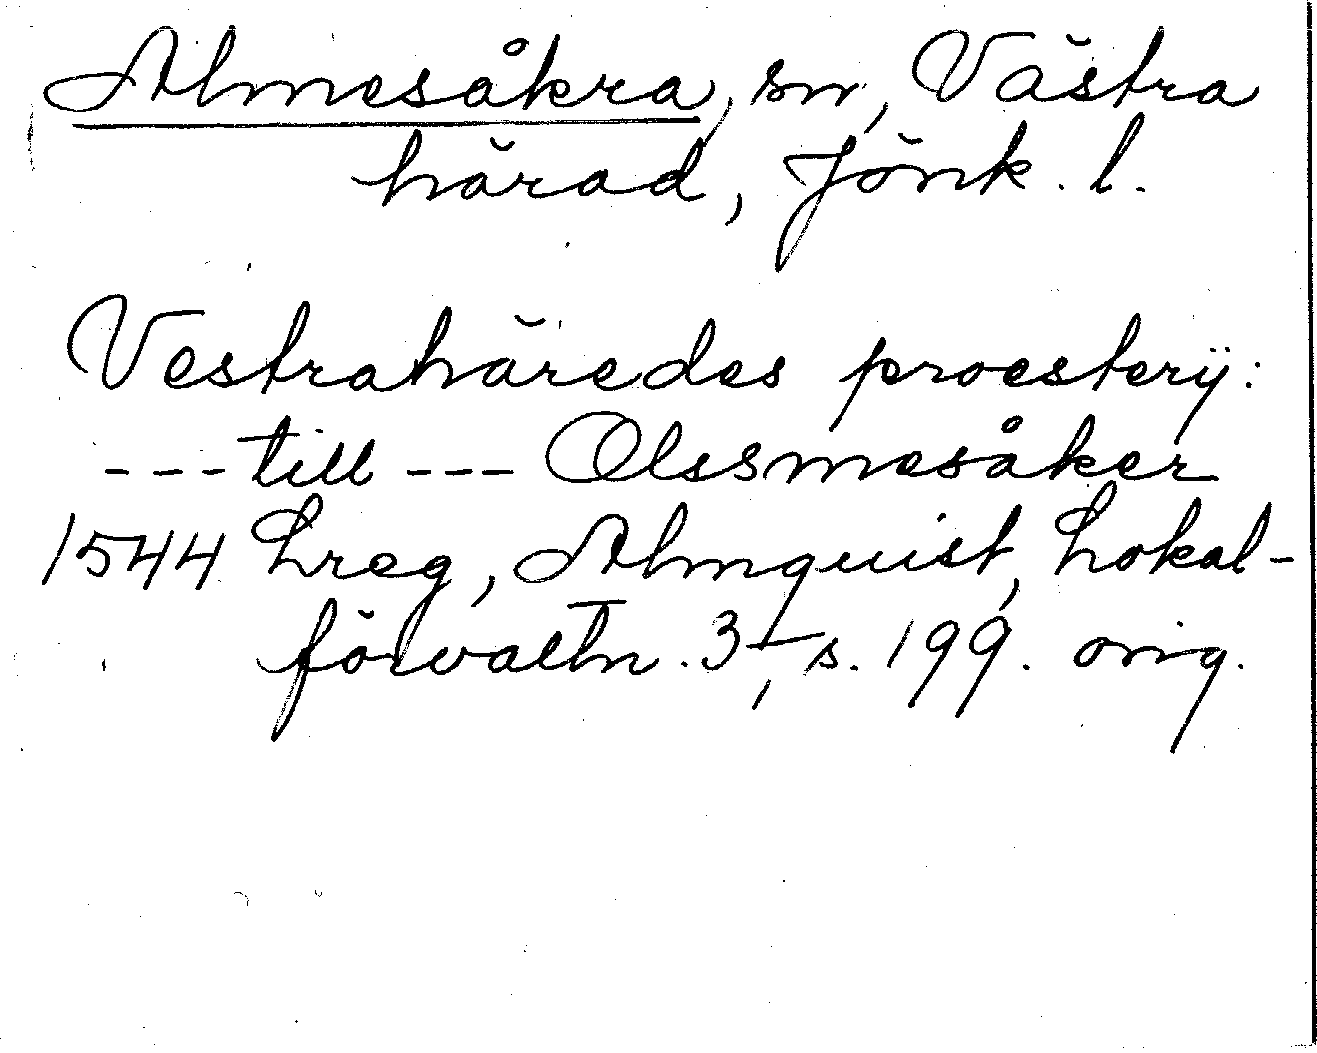 Almesåkra, sn, Västra
härad, Jönk. l.
Vestrahäredes proesterÿ:
--- till --- Olssmesåker
1544 Lreg, Almquist, Lokal-
förvaltn. 3, s. 199. orig.